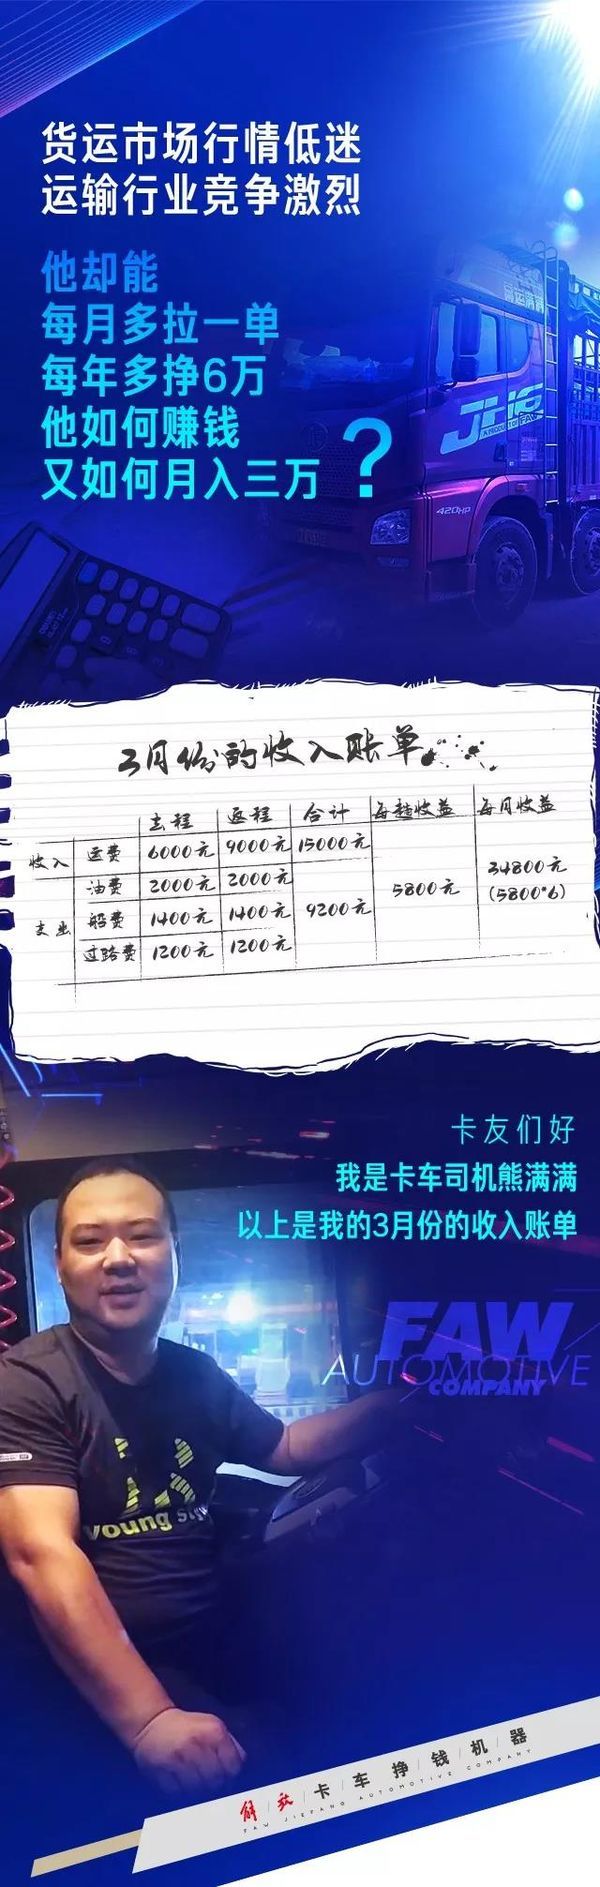 货运市场行情低迷
运输行业竞争激烈
他却能
每月多拉一单
每年多挣6万
他如何赚钱
又如何月入三万？
JH6
420HP
3月份的收入账单
去程 返程 合计 每趟收益 每月收益
收入 运费 6000元 9000元 15000元
油费 2000元 2000元
支出 船费 1400元 1400元 9200元 5800元 34800元
(5800*6)
过路费 1200元 1200元
卡友们好
我是卡车司机熊满满
以上是我的3月份的收入账单
FAW
AUTOMOTIVE
COMPANY
young
解放卡车挣钱机器
FAW JIEFANG AUTOMOTIVE COMPANY